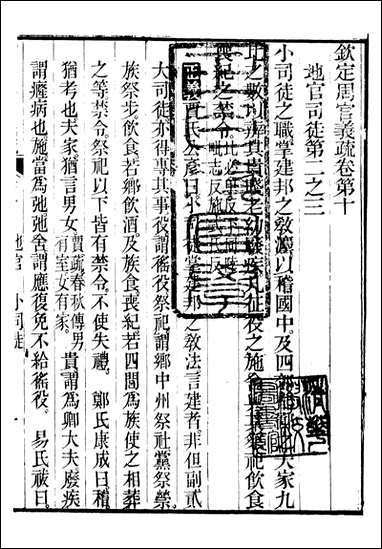 欽定周官義疏卷第十
地官司徒第二之三
小司徒之職掌建邦之教灋以稽國中及四郊都鄙之夫家九
比之數以辨其貴賤老幼癈疾凡征役之施舍與其祭祀飲食
喪紀之禁令
正義賈氏公彥曰小司徒掌建邦之教法言建者非但副貳
大司徒亦得專其事役謂徭役祭祀謂鄉中州祭社黨祭禜
族祭步飲食若鄉飲酒及族食喪紀若四閭為族使之相葬
之等禁令祭祀以下皆有禁令不使失禮。鄭氏康成曰稽
猶考也夫家猶言男女賈疏春秋傳男有室女有家。貴謂為卿大夫癈疾
謂癃病也施當為弛弛舍謂應復免不給徭役。易氏祓曰。
地官 小司徒